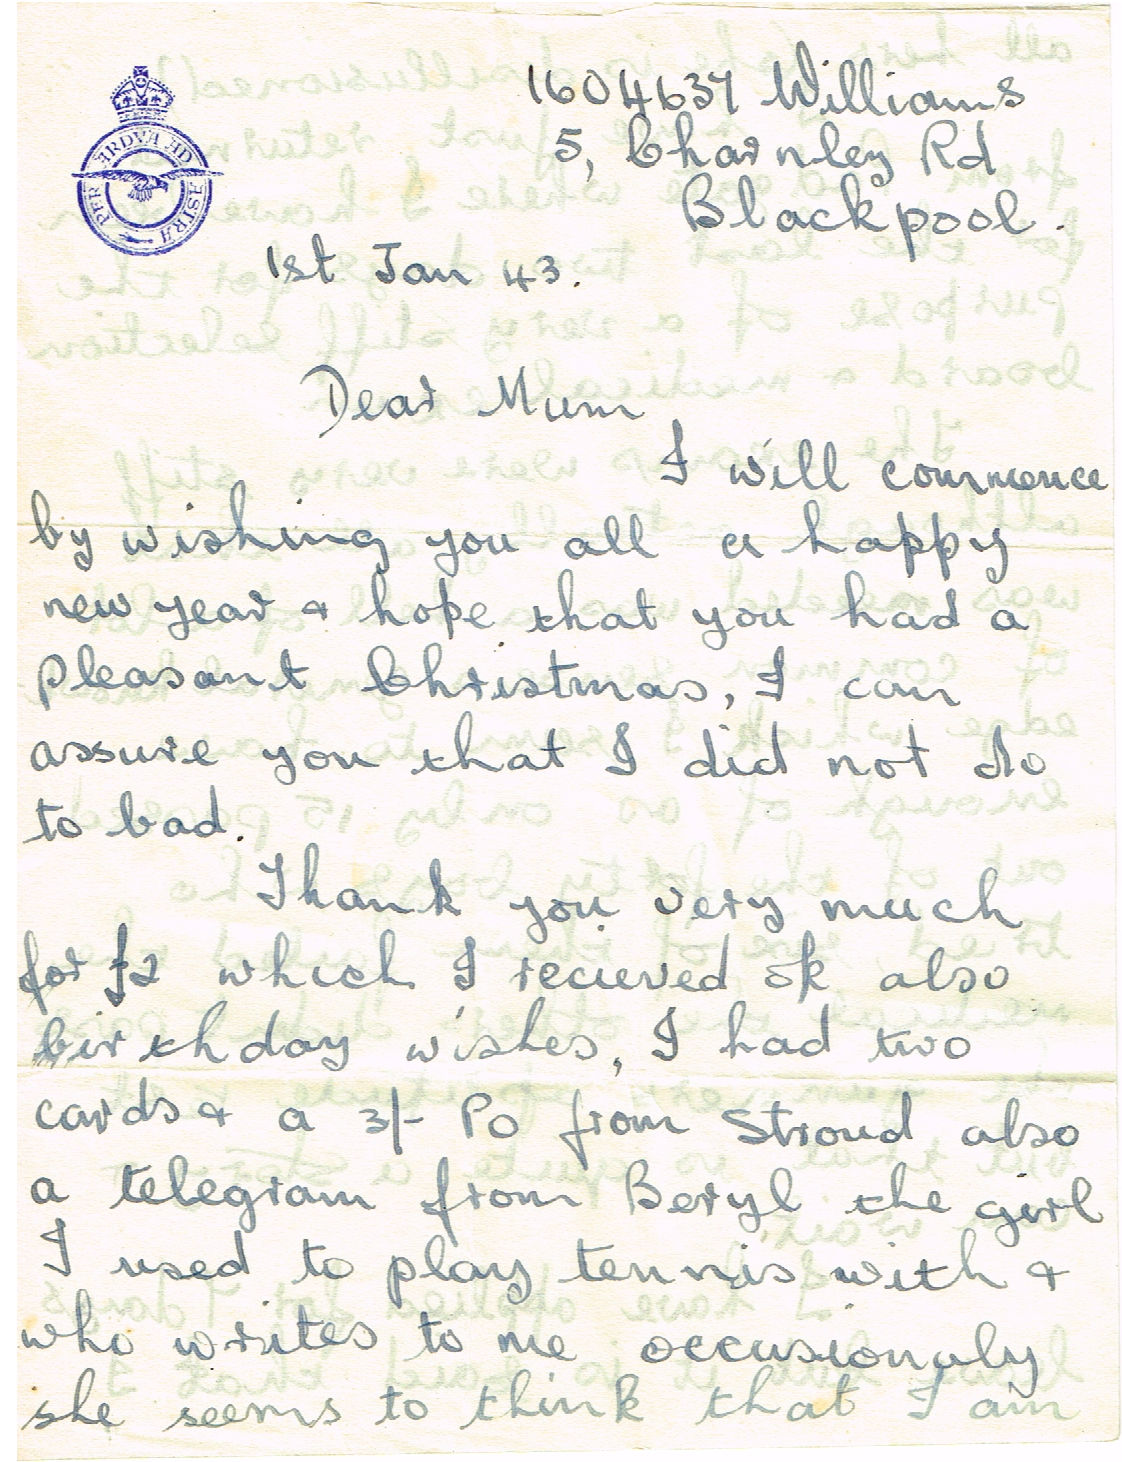 PER ARDVA AD ASTRA
1604637 Williams
5, Charnley Rd
Blackpool.
1st Jan 43.
Dear Mum
I will commence
by wishing you all a happy
new year & hope that you had a
pleasant Christmas, I can
assure you that I did not do
to bad.
Thank you very much
for £2 which I recieved ok also
birthday wishes, I had two
cards & a 3/- PO from Stroud also
a telegram from Beryl the girl
I used to play tennis with &
who writes to me occusionaly
she seems to think that I am